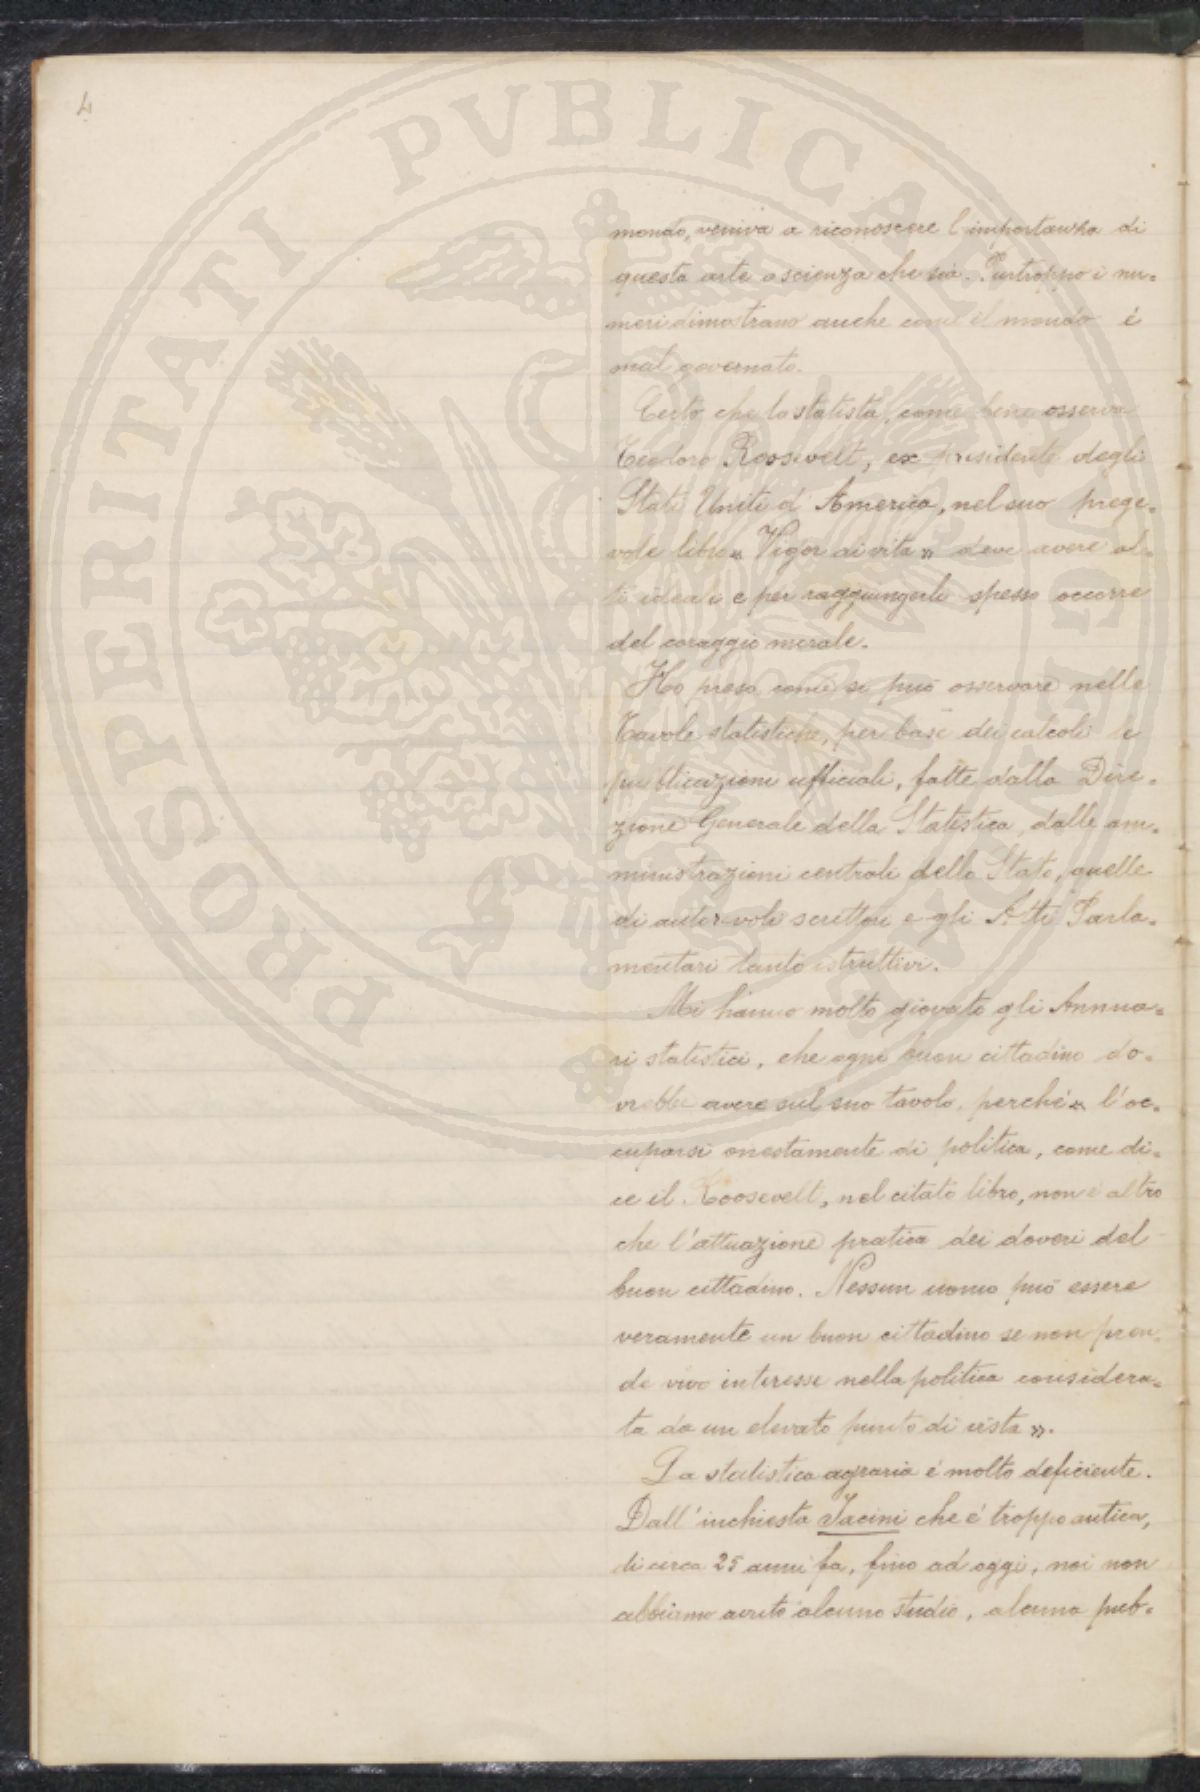 4
PROSPERITATI PVBLICAE AVGENDAE
mondo, veniva a riconoscere l'importanza di
questa arte o scienza che sia. Purtroppo i nu=
meri dimostrano anche come il mondo è
mal governato.
Certo che lo statista, come bene osserva
Teodoro Roosevelt, ex presidente degli
Stati Uniti d'America, nel suo prege=
vole libro « Vigor di vita » deve avere al=
ti ideali e per raggiungerli spesso occorre
del coraggio morale.
Ho preso come si può osservare nelle
Tavole statistiche, per base dei calcoli le
pubblicazioni ufficiali, fatte dalla Dire=
zione Generale della Statistica, dalle am=
ministrazioni centrali dello Stato, quelle
di autorevoli scrittori e gli Atti Parla=
mentari tanto istruttivi.
Mi hanno molto giovato gli Annua=
ri statistici, che ogni buon cittadino do=
vrebbe avere sul suo tavolo, perché « l'oc=
cuparsi onestamente di politica, come di=
ce il Roosevelt, nel citato libro, non è altro
che l'attuazione pratica dei doveri del
buon cittadino. Nessun uomo può essere
veramente un buon cittadino se non pren=
de vivo interesse nella politica considera=
ta da un elevato punto di vista ».
La statistica agraria è molto deficiente.
Dall'inchiesta Jacini che è troppo antica,
di circa 25 anni fa, fino ad oggi, noi non
abbiamo avuto alcuno studio, alcuna pub=